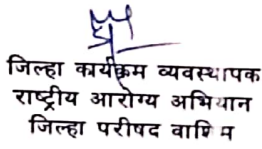 जिल्हा कार्यक्रम व्यवस्थापक
राष्ट्रीय आरोग्य अभियान
जिल्हा परीषद वाशिम